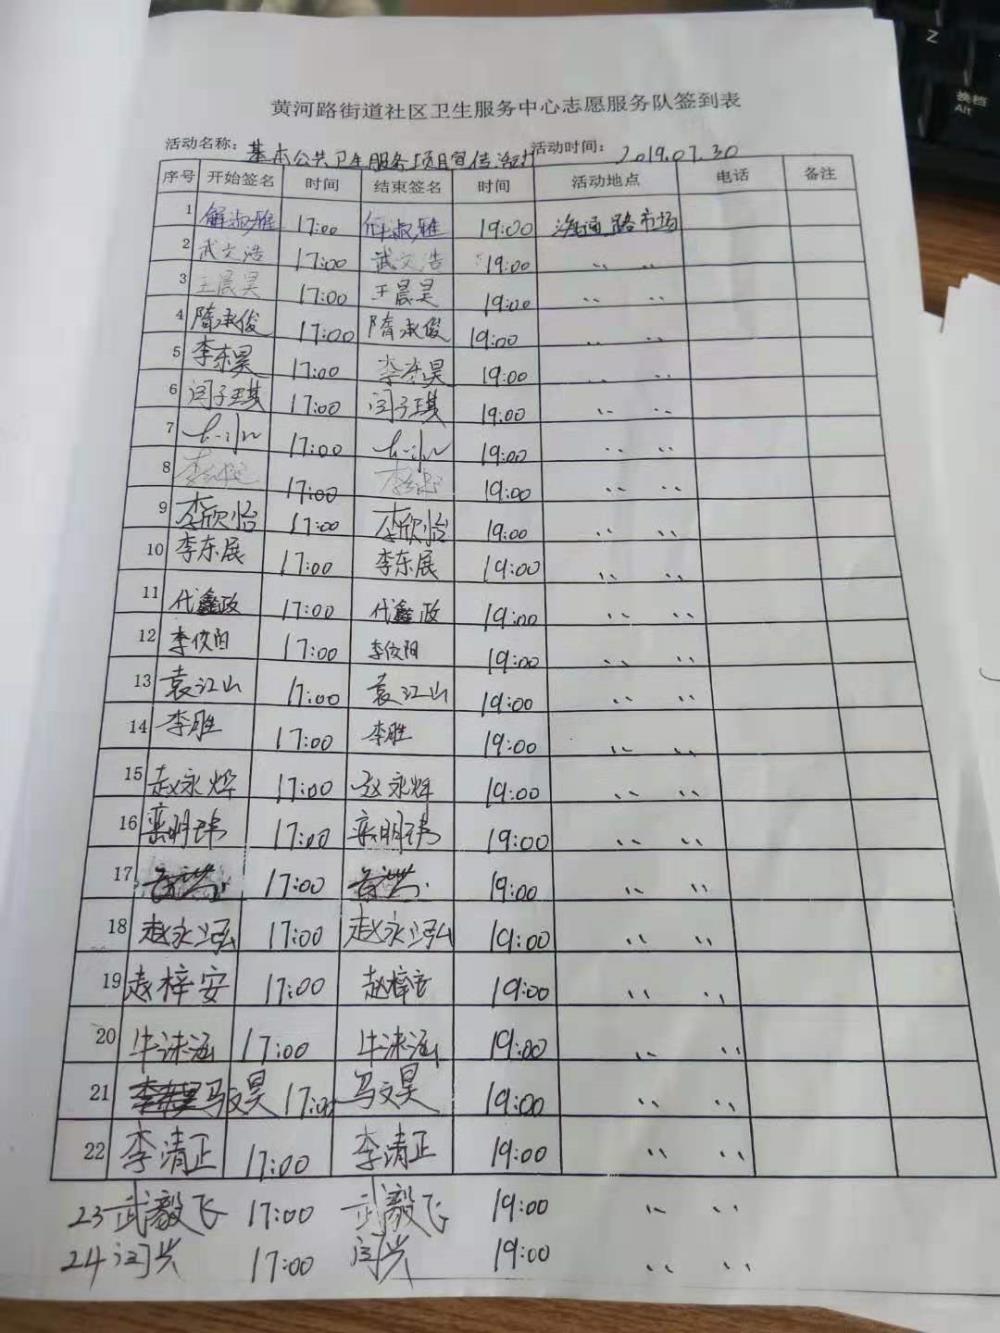 黄河路街道社区卫生服务中心志愿服务队签到表
活动名称: 基本公共卫生服务项目宣传活动 活动时间: 2019.07.30
序号 开始签名 时间 结束签名 时间 活动地点 电话 备注
1 解淑雅 17:00 解淑雅 19:00 海通路市场
2 武文浩 17:00 武文浩 19:00 〃 〃
3 王晨昊 17:00 王晨昊 19:00 〃 〃
4 隋承俊 17:00 隋承俊 19:00 〃 〃
5 李东昊 17:00 李东昊 19:00 〃 〃
6 闫子琪 17:00 闫子琪 19:00 〃 〃
7 17:00 19:00 〃 〃
8 17:00 19:00 〃 〃
9 李欣怡 17:00 李欣怡 19:00 〃 〃
10 李东展 17:00 李东展 19:00 〃 〃
11 代鑫政 17:00 代鑫政 19:00 〃 〃
12 李俊阳 17:00 李俊阳 19:00 〃 〃
13 袁江山 17:00 袁江山 19:00 〃 〃
14 李胜 17:00 李胜 19:00 〃 〃
15 赵永烨 17:00 赵永烨 19:00 〃 〃
16 栾明玮 17:00 栾明玮 19:00 〃 〃
17 17:00 19:00 〃 〃
18 赵永泓 17:00 赵永泓 19:00 〃 〃
19 赵梓安 17:00 赵梓安 19:00 〃 〃
20 牛沫涵 17:00 牛沫涵 19:00 〃 〃
21 马文昊 17:00 马文昊 19:00 〃 〃
22 李清正 17:00 李清正 19:00 〃 〃
23 武毅飞 17:00 武毅飞 19:00 〃 〃
24 闫兴 17:00 闫兴 19:00 〃 〃
Z
换档
Alt